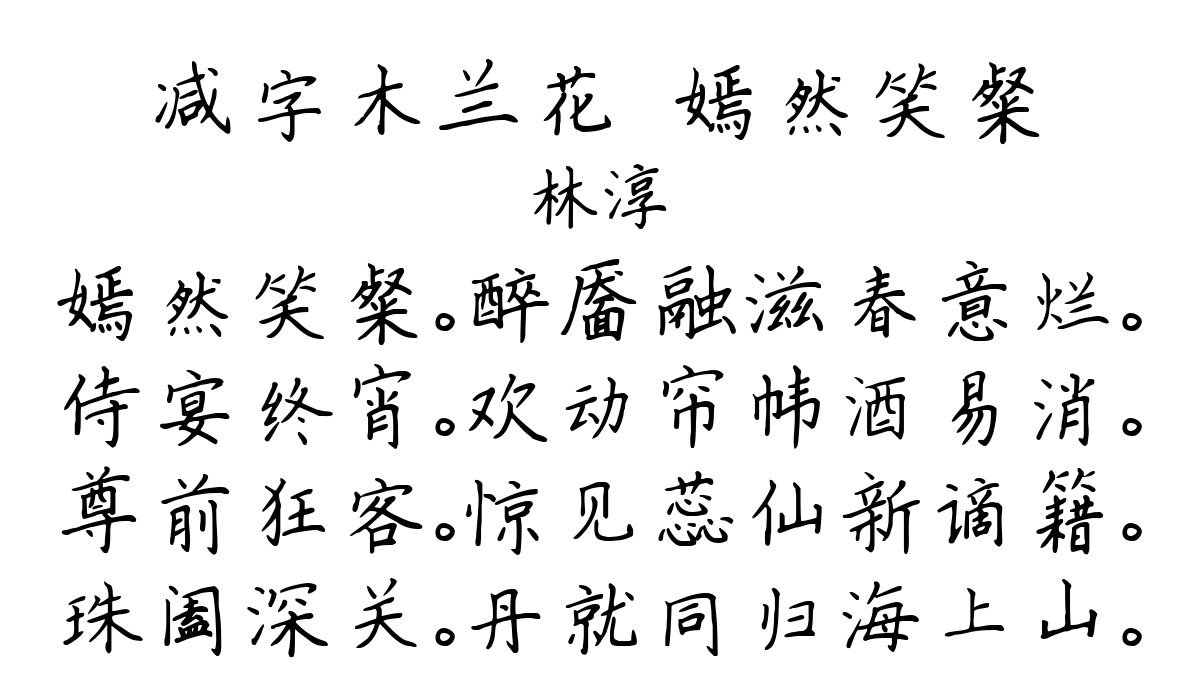 减字木兰花 嫣然笑粲
林淳
嫣然笑粲。醉靥融滋春意烂。
侍宴终宵。欢动帘帏酒易消。
尊前狂客。惊见蕊仙新谪籍。
珠阖深关。丹就同归海上山。